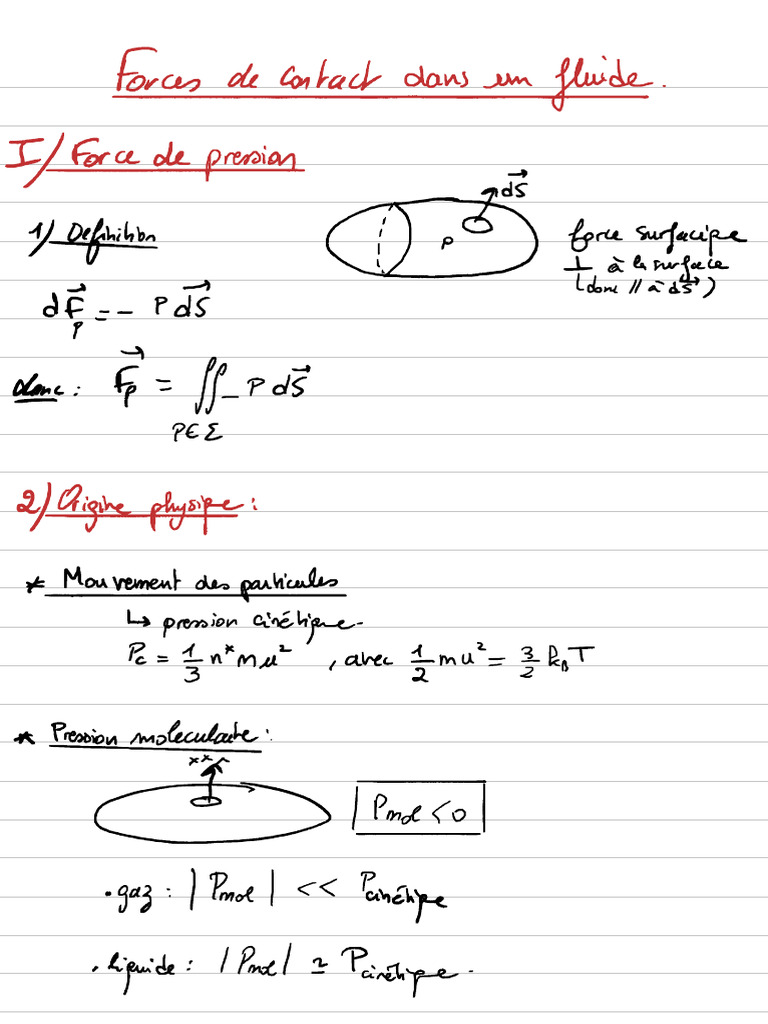 Forces de contact dans un fluide.
I/ Force de pression
1) Définition
dS⃗
P
force surfacique
⊥ à la surface
(donc // à dS⃗)
dF⃗p = - P dS⃗
donc : F⃗p = ∬ - P dS⃗
P ∈ Σ
2) Origine physique :
* Mouvement des particules
↳ pression cinétique.
Pc = 1/3 n* m u² , avec 1/2 m u² = 3/2 kB T
* Pression moléculaire :
Pmol < 0
. gaz : | Pmol | << Pcinétique
. liquide : | Pmol | ≃ Pcinétique.